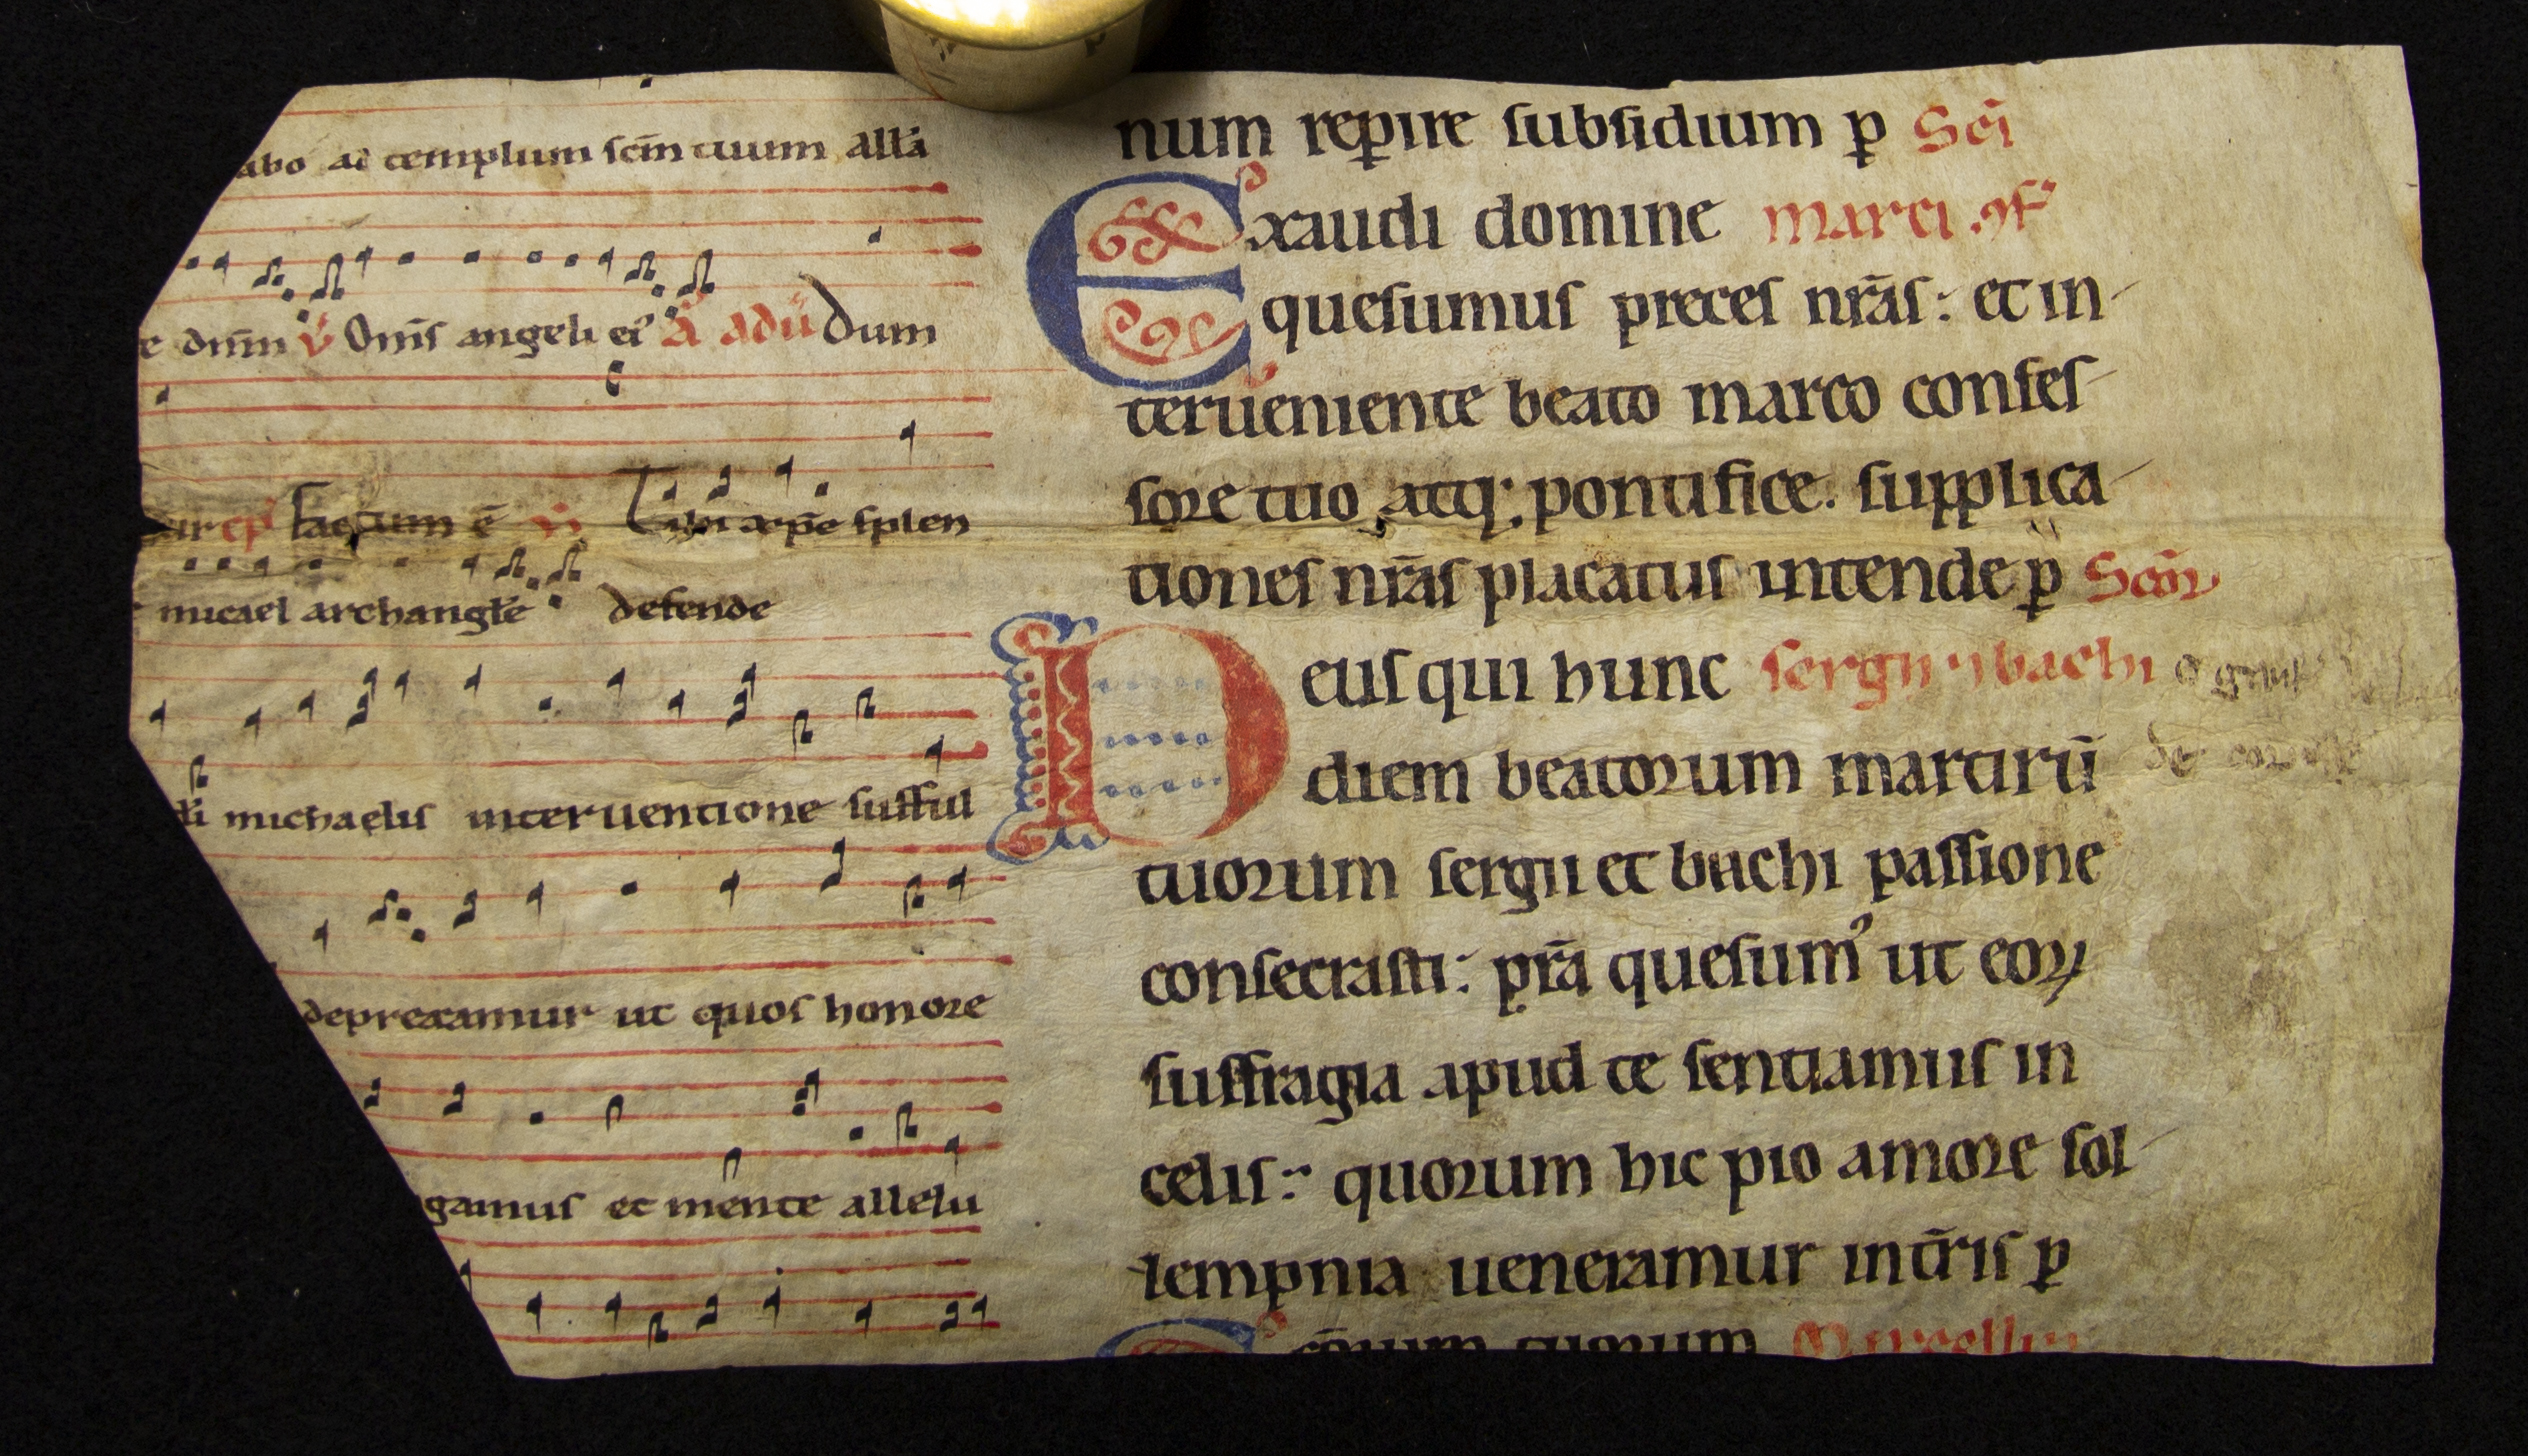 abo ad templum scm̄ tuum allã
e dnm̄ v̄ Om̄s angeli ei⁹ ã adū dum
ur ep̄ factum ē v̄
Tibi xp̄e splen
micael archangłe defende
michaelis interuentione suffful
deprecamur ut quos honore
gamus et mente allelu
num reꝑire subsidium ꝑ Sc̄i
Exaudi domine marci ꝯf
quesumus preces nr̄as: et in-
terueniente beato marco confes-
sore tuo atq; pontifice. supplica-
tiones nr̄as placatus intende ꝑ Sc̄oꝝ
Deus qui hunc sergii ⁊ bachi
diem beatorum martirū
tuorum sergii et bachi passione
consecrasti: pr̄a quesum⁹ ut eoꝝ
suffragia apud te sentiamus in
celis: quorum hic pio amore sol-
lempnia ueneramur in tr̄is ꝑ
tuorum Marcelli